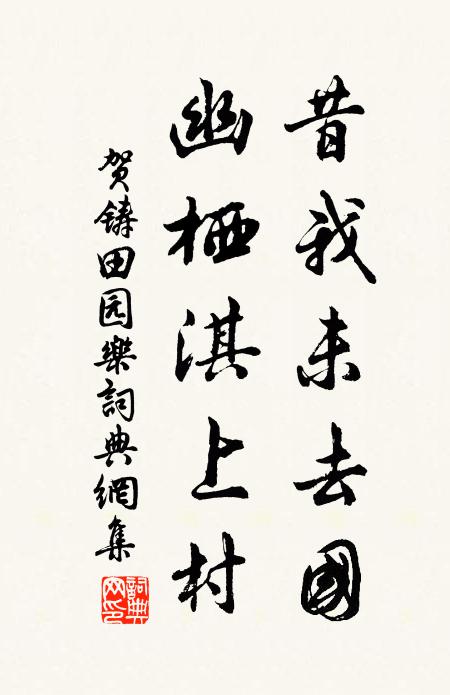 昔我未去國
幽栖淇上村
贺鋳田园樂詞典網集
詞典网印